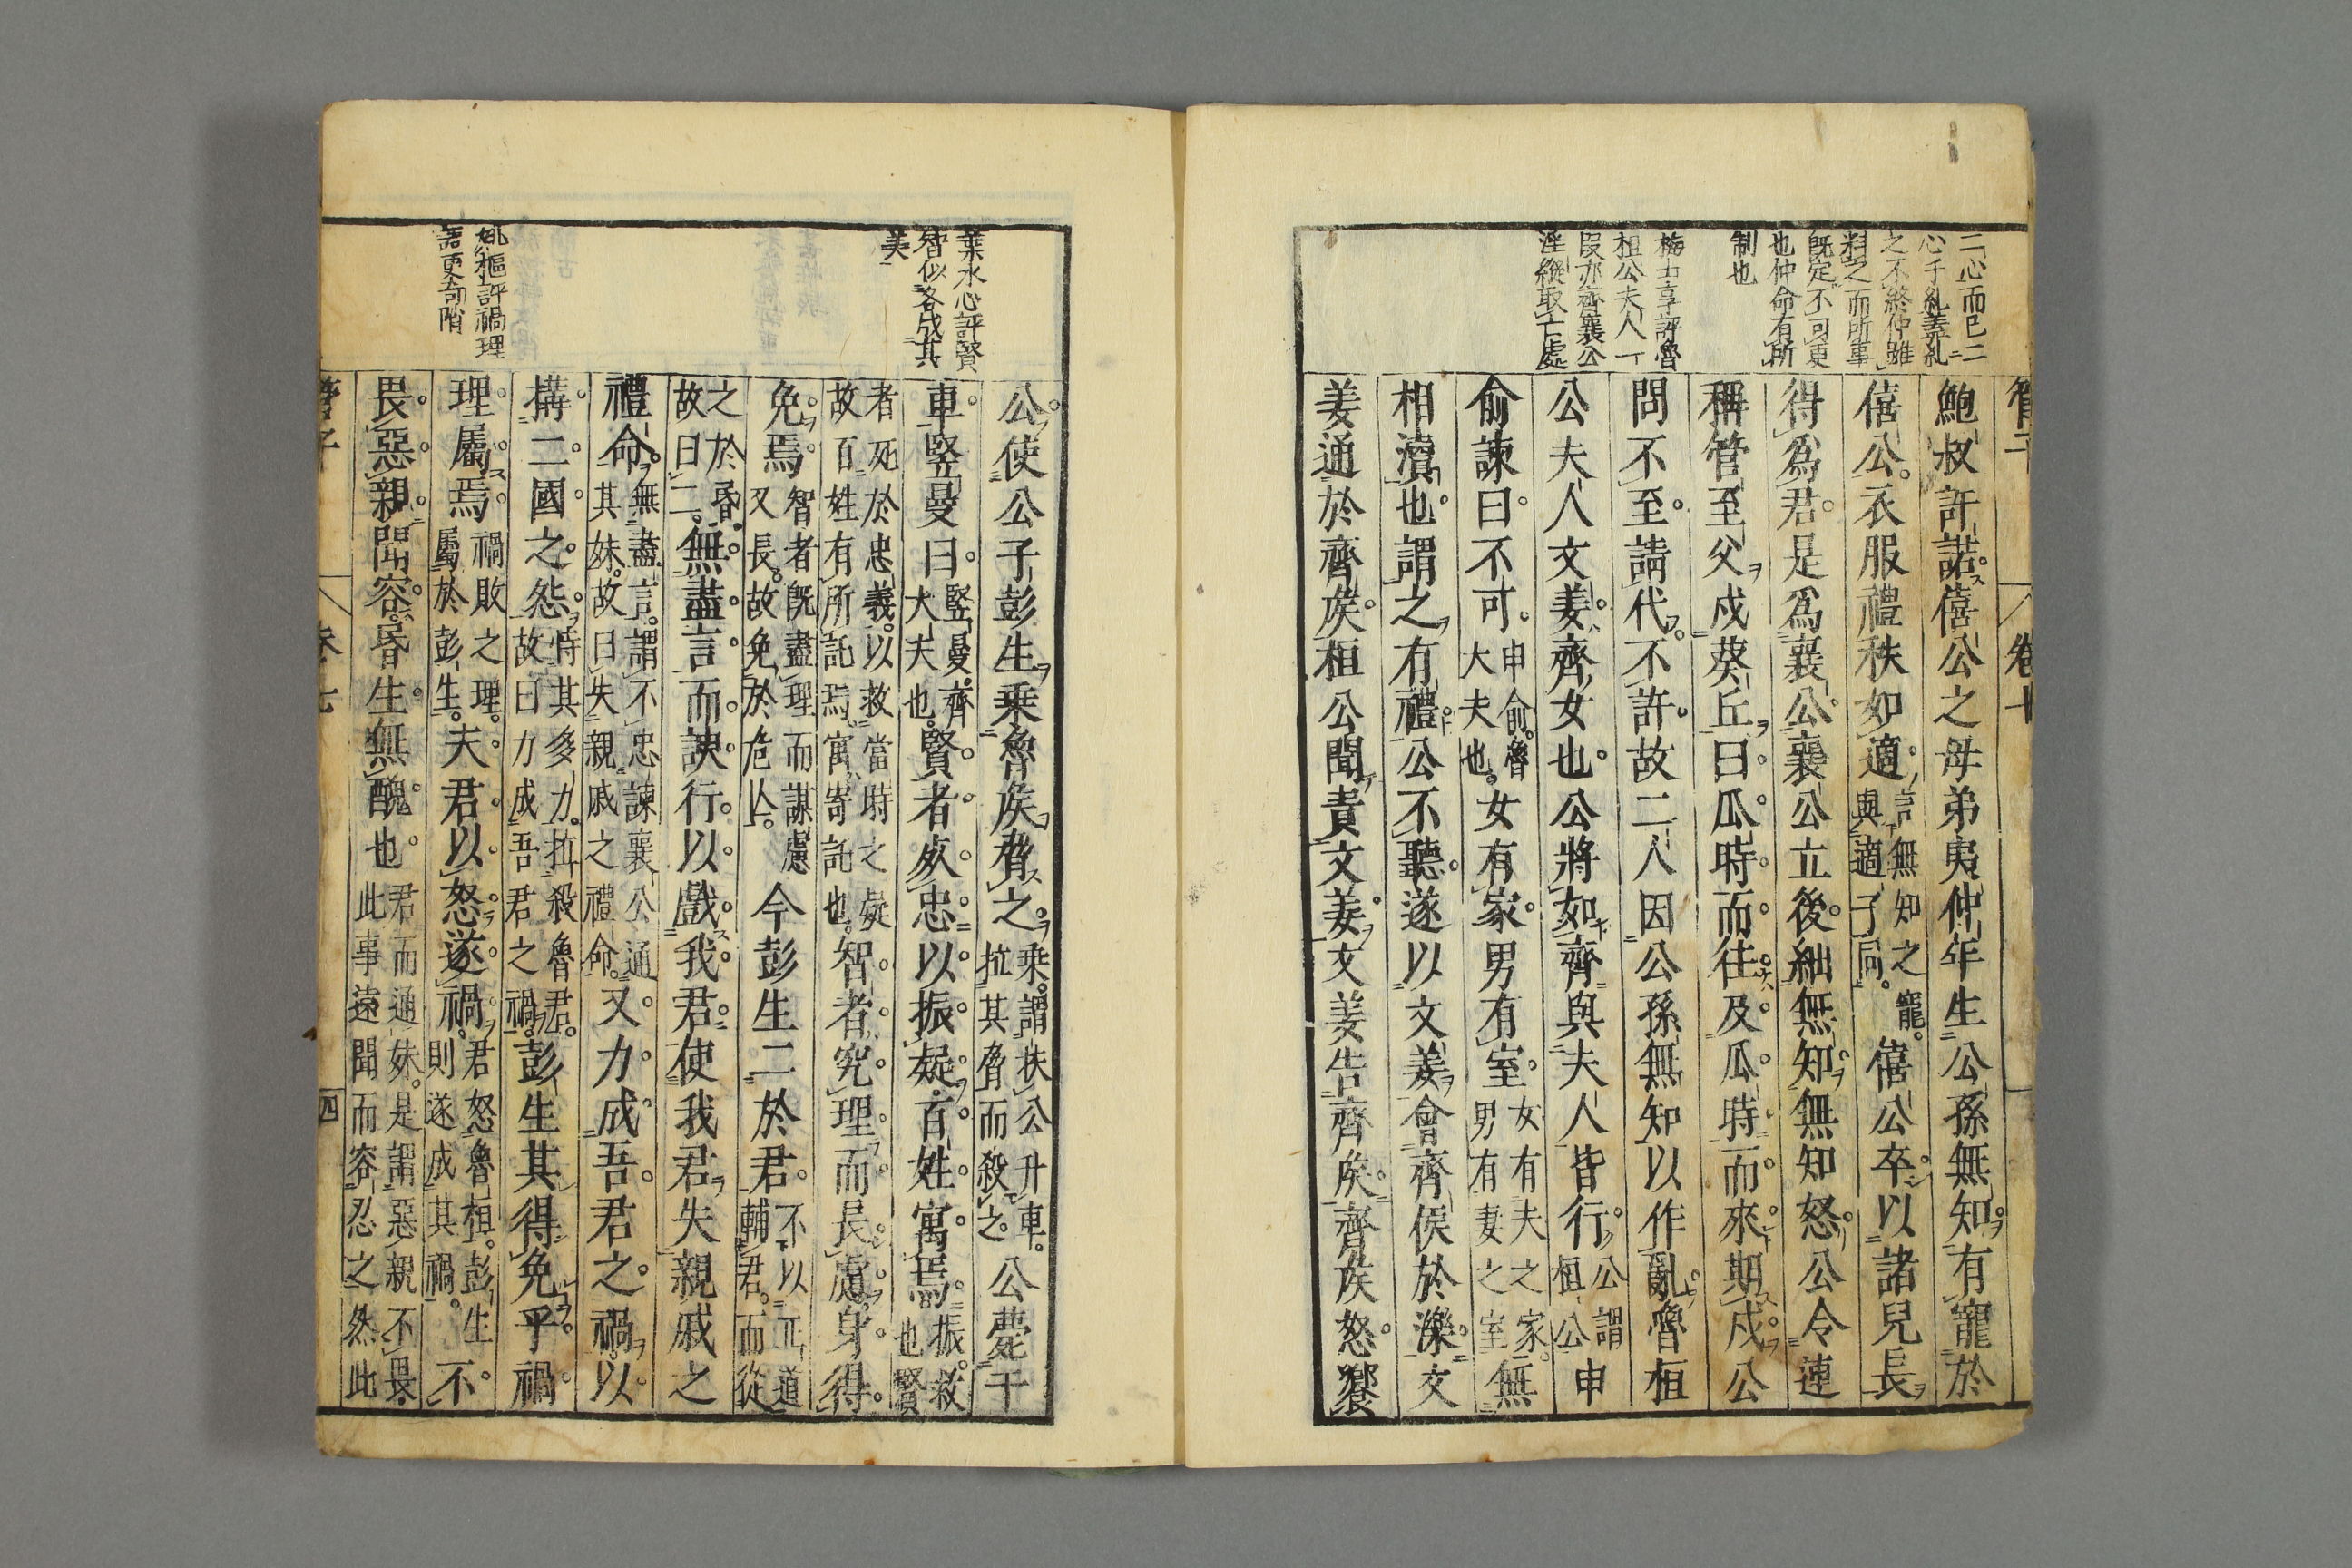 二心而已二
心于糺盖糺
之不終仲雖
料之而所事
既定不可更
也仲命有所
制也
梅士享評魯
桓公夫人一
段亦齊襄公
淫縱取亡處
鮑叔許諾僖公之母弟夷仲年生公孫無知有寵於
僖公衣服禮秩如適言無知之寵與適子同僖公卒以諸兒長
得為君是為襄公襄公立後絀無知無知怒公令連
稱管至父戍葵丘曰瓜時而往及瓜時而來期戍公
問不至請代不許故二人因公孫無知以作亂魯桓
公夫人文姜齊女也公將如齊與夫人皆行公謂桓公申
俞諫曰不可申俞魯大夫也女有家男有室女有夫之家男有妻之室無
相瀆也謂之有禮公不聽遂以文姜會齊侯於濼文
姜通於齊矦桓公聞責文姜文姜告齊矦齊矦怒饗
葉水心評賢
智似各成其
美
評禍理
語更奇階
公使公子彭生乗魯矦脅之乗謂扶公升車拉其脅而殺之公薨于
車竪曼曰竪曼齊大夫也賢者死忠以振疑百姓寓焉振救也賢
者死於忠義以救當時之疑故百姓有所託焉寓寄託也智者究理而長慮身得
免焉智者既盡理而謀慮又長故免於危亡今彭生二於君不以正道輔君而從
之於昏故曰二無盡言而諛行以戲我君使我君失親戚之
禮命無盡言謂不忠諫襄公通其妹故曰失親戚之禮命又力成吾君之禍以
搆二國之怨恃其多力拉殺魯君故曰力成吾君之禍彭生其得免乎禍
理屬焉禍敗之理屬於彭生夫君以怒遂禍君怒魯桓彭生則遂成其禍不
畏惡親聞容昏生無醜也君而通妹是謂惡親不畏此事遠聞而容忍之然此